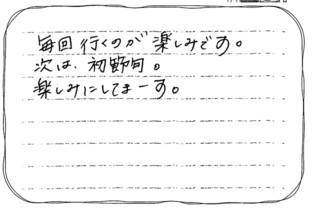 毎回行くのが楽しみです。
次は、初野旬。
楽しみにしてまーす。